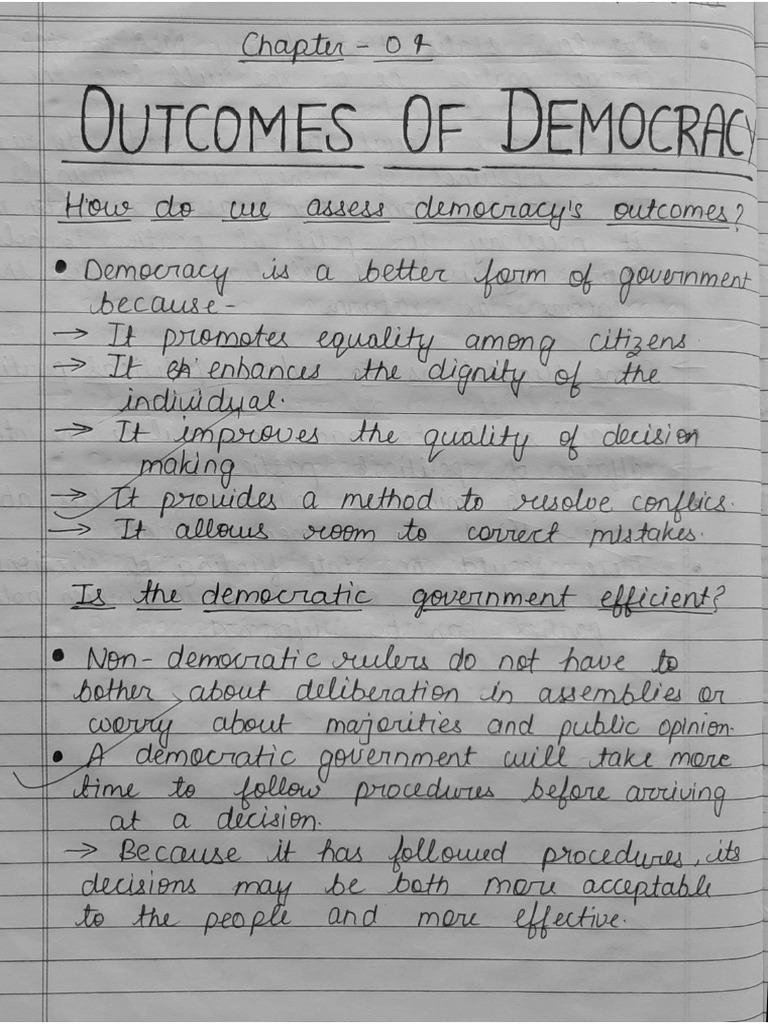 Chapter - 04
OUTCOMES OF DEMOCRACY
How do we assess democracy's outcomes?
• Democracy is a better form of government
because -
→ It promotes equality among citizens
→ It enhances the dignity of the
individual.
→ It improves the quality of decision
making
→ It provides a method to resolve conflics.
→ It allows room to correct mistakes.
Is the democratic government efficient?
• Non-democratic rulers do not have to
bother about deliberation in assemblies or
worry about majorities and public opinion.
• A democratic government will take more
time to follow procedures before arriving
at a decision.
→ Because it has followed procedures, its
decisions may be both more acceptable
to the people and more effective.